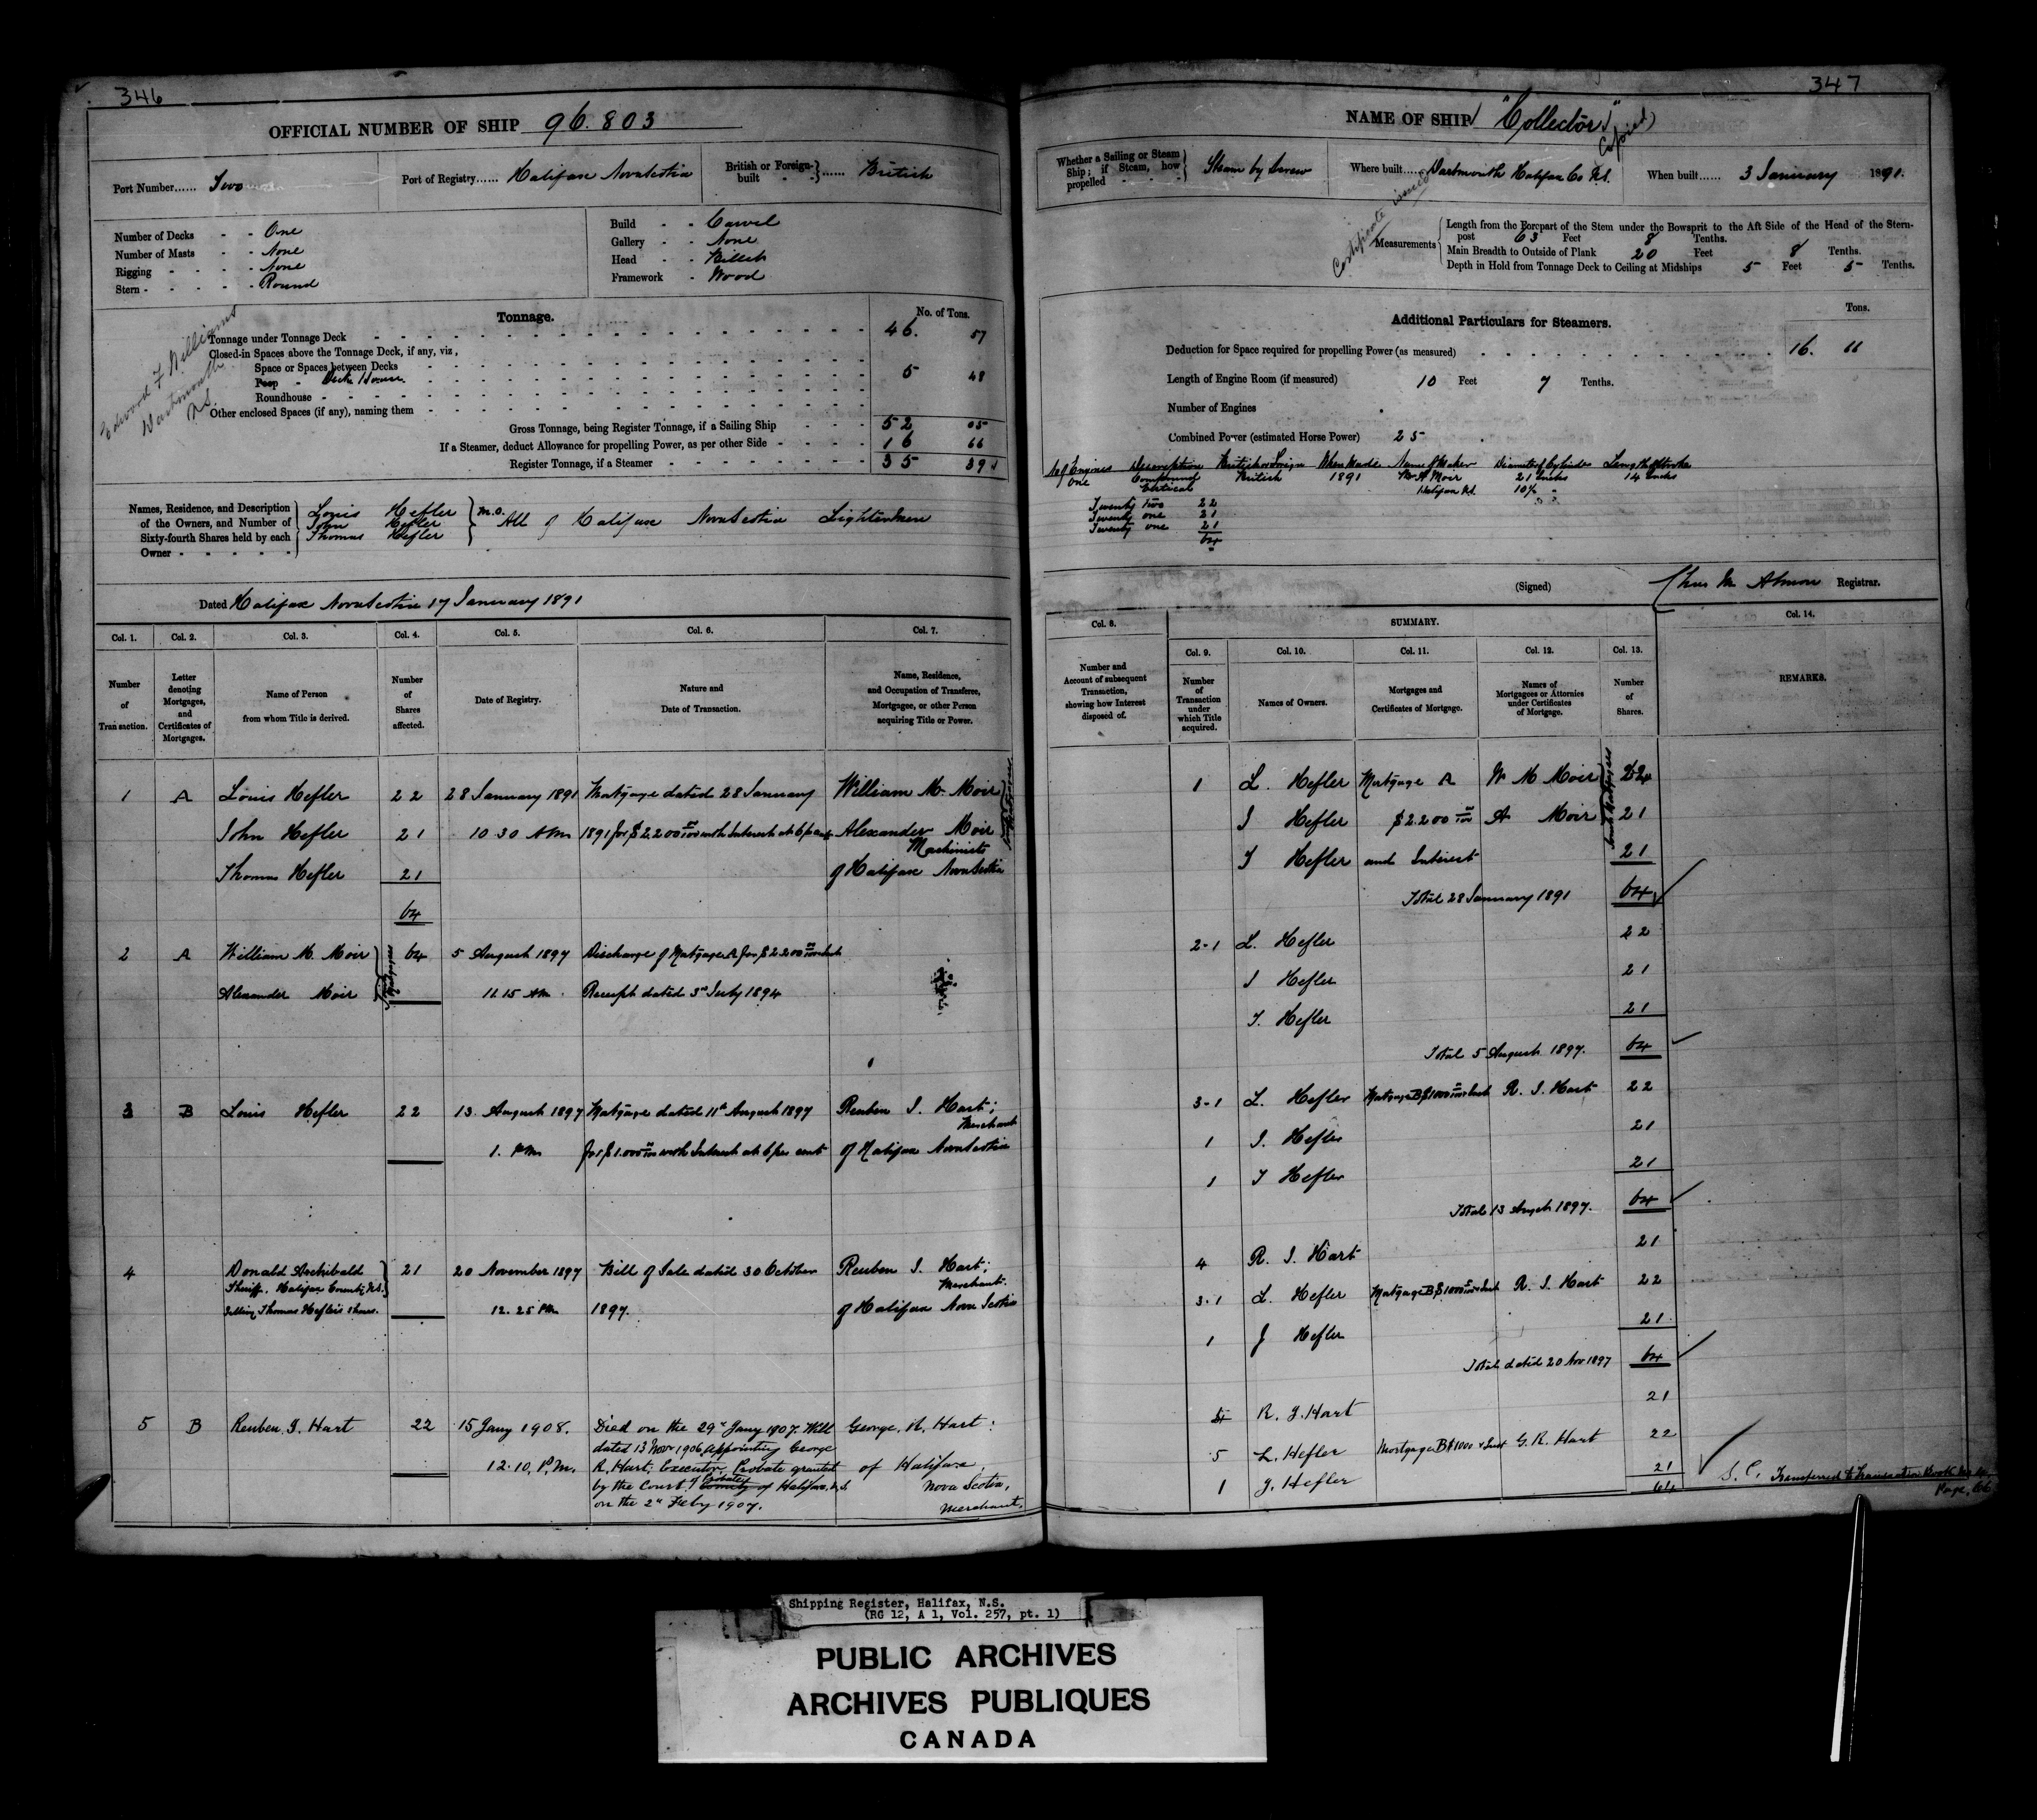 346
OFFICIAL NUMBER OF SHIP 96.803
Port Number...... Two
Port of Registry...... Halifax NovaScotia
British or Foreign-built - - } ...... British
Number of Decks - - One
Number of Masts - - None
Rigging - - - - None
Stern - - - - - Round
Build - - Carvel
Gallery - - None
Head - - Billet
Framework - Wood
Edward F Williams
Dartmouth
N.S.
Tonnage.
No. of Tons.
Tonnage under Tonnage Deck 46. 57
Closed-in Spaces above the Tonnage Deck, if any, viz,
Space or Spaces between Decks
Poop - Deck House 5 48
Roundhouse
Other enclosed Spaces (if any), naming them
Gross Tonnage, being Register Tonnage, if a Sailing Ship 52 05
If a Steamer, deduct Allowance for propelling Power, as per other Side 16 66
Register Tonnage, if a Steamer 35 39
Names, Residence, and Description of the Owners, and Number of Sixty-fourth Shares held by each Owner
Louis Hefler
John Hefler
Thomas Hefler
M.O. All of Halifax NovaScotia Lightermen
Dated Halifax NovaScotia 17 January 1891
Col. 1. Col. 2. Col. 3. Col. 4. Col. 5. Col. 6. Col. 7.
Number of Transaction.
Letter denoting Mortgages, and Certificates of Mortgages.
Name of Person from whom Title is derived.
Number of Shares affected.
Date of Registry.
Nature and Date of Transaction.
Name, Residence, and Occupation of Transferee, Mortgagee, or other Person acquiring Title or Power.
1 A Louis Hefler 22 28 January 1891 Mortgage dated 28 January William M. Moir
John Hefler 21 10 30 AM 1891 for $2.200 00/100 with Interest at 6 per cent Alexander Moir
Machinists
Thomas Hefler 21 of Halifax NovaScotia
Joint Mortgagees
64
2 A William M. Moir 64 5 August 1897 Discharge of Mortgage A for $2200 00/100 & Int
Alexander Moir 11.15 AM Receipt dated 3rd July 1894
Joint Mortgagees
3 B Louis Hefler 22 13. August 1897 Mortgage dated 11th August 1897 Reuben I. Hart;
Merchant
1. PM for $1.000 00/100 with Interest at 6 per cent of Halifax NovaScotia
4 Donald Archibald 21 20 November 1897 Bill of Sale dated 30 October Reuben I. Hart;
Sheriff, Halifax County, N.S. Merchant.
Selling Thomas Hefler's shares. 12.25 PM 1897. of Halifax Nova Scotia
5 B Reuben. I. Hart 22 15 Jany 1908. Died on the 29th Jany 1907. Will George. R. Hart:
dated 13 Novr 1906, appointing George
12.10, P.M. R. Hart, Executor, Probate granted of Halifax,
by the Court of Probate County of Halifax, N.S. Nova Scotia,
on the 2nd Feby 1907. Merchant,
347
NAME OF SHIP "Collector"
(Copied)
Whether a Sailing or Steam Ship; if Steam, how propelled - - - Steam by Screw
Where built...... Dartmouth Halifax Co N.S.
When built...... 3 January 1891.
Certificate issued
Measurements
Length from the Forepart of the Stem under the Bowsprit to the Aft Side of the Head of the Stern-
post 63 Feet 8 Tenths.
Main Breadth to Outside of Plank 20 Feet 8 Tenths.
Depth in Hold from Tonnage Deck to Ceiling at Midships 5 Feet 5 Tenths.
Additional Particulars for Steamers.
Tons.
Deduction for Space required for propelling Power (as measured) 16. 66
Length of Engine Room (if measured) 10 Feet 7 Tenths.
Number of Engines
Combined Power (estimated Horse Power) 25
No of Engines Description British or Foreign When Made Name of Maker Diameter of Cylinders Length of Stroke
One Compound British 1891 Wm A Moir 21 Inches 14 Inches
Vertical Halifax N.S. 10½ "
Twenty two 22
Twenty one 21
Twenty one 21
64
(Signed) Chas M Almon Registrar.
Col. 8. SUMMARY. Col. 14.
Col. 9. Col. 10. Col. 11. Col. 12. Col. 13.
Number and Account of subsequent Transaction, showing how Interest disposed of.
Number of Transaction under which Title acquired.
Names of Owners.
Mortgages and Certificates of Mortgage.
Names of Mortgagees or Attornies under Certificates of Mortgage.
Number of Shares.
REMARKS.
1 L. Hefler Mortgage A W M Moir 22
J Hefler $2.200 00/100 A Moir 21
T Hefler and Interest 21
Joint Mortgagees
Total 28 January 1891 64
2-1 L. Hefler 22
J Hefler 21
T. Hefler 21
Total 5 August 1897. 64
3-1 L. Hefler Mortgage B $1000 00/100 & Int R. I. Hart 22
1 J. Hefler 21
1 T Hefler 21
Total 13 Augst 1897. 64
4 R. I. Hart 21
3.1 L. Hefler Mortgage B $1000 00/100 & Int R. I. Hart 22
1 J Hefler 21
Total dated 20 Nov 1897 64
4 R. I. Hart 21
5 L. Hefler Mortgage B $1000 & Int G. R. Hart 22
1 J. Hefler 21
64
S. C. Transferred to Transaction Book No
Page, 66
Shipping Register, Halifax, N.S.
(RG 12, A 1, Vol. 257, pt. 1)
PUBLIC ARCHIVES
ARCHIVES PUBLIQUES
CANADA